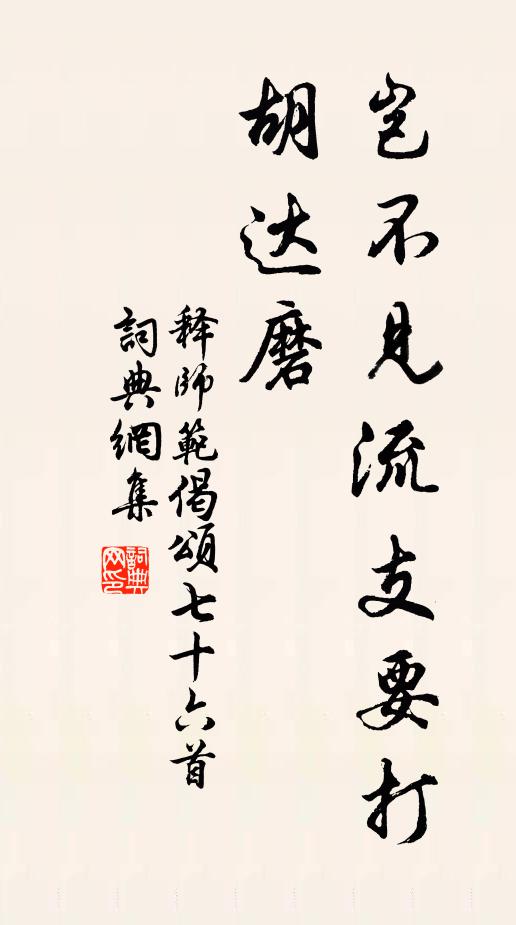 岂不见流支要打
胡达磨
释师範偈頌七十六首
詞典網集
詞典网印